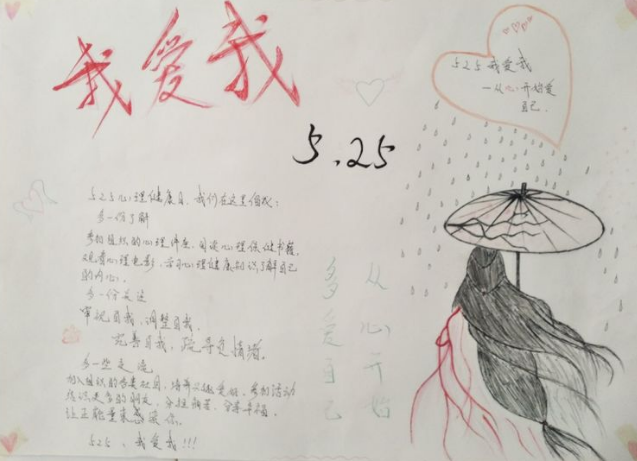 我爱我
5.25
525我爱我
—从心开始爱
自己.
525心理健康日,我们在这里倡议:
多一份了解
参加组织的心理讲座,阅读心理保健书籍,
观看心理电影,学习心理健康知识了解自己
的内心.
多一份关注
审视自我,调整自我.
完善自我,疏导负情绪.
多一些交流
加入组织的 项目,培养兴趣爱好,参加活动
结识更多的朋友,分担痛苦,分享幸福,
让正能量来感染你.
525、我爱我!!!
从心开始
多爱自己